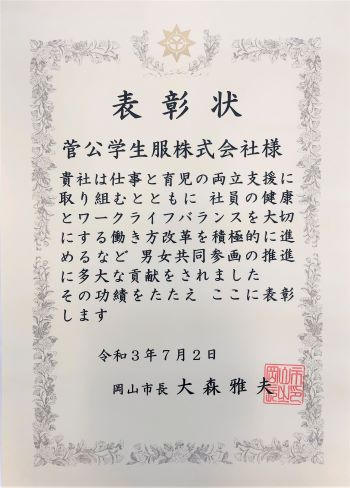 表彰状
菅公学生服株式会社様
貴社は仕事と育児の両立支援に
取り組むとともに 社員の健康
とワークライフバランスを大切
にする働き方改革を積極的に進
めるなど 男女共同参画の推進
に多大な貢献をされました
その功績をたたえ ここに表彰
します
令和3年7月2日
岡山市長 大森雅夫